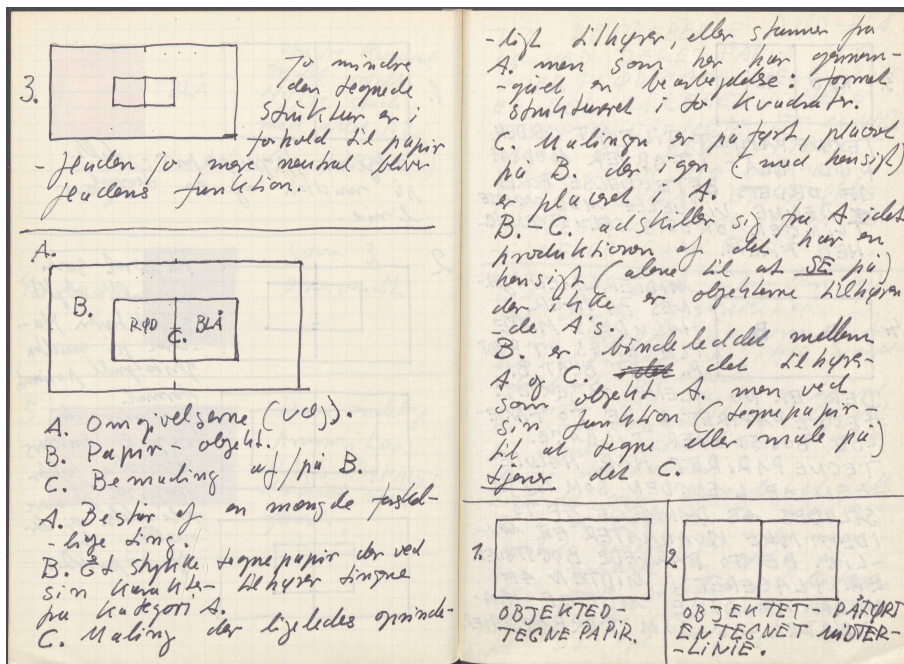 3.
Jo mindre
den tegnede
struktur er i
forhold til papir
- fladen jo mere neutral bliver
fladens funktion.
A.
B.
RØD BLÅ
C.
A. Omgivelserne (VO).
B. Papir - objekt.
C. Bemaling af/på B.
A. Består af en mængde forskel-
-lige ting.
B. Et stykke tegnepapir der ved
sin karakter tilhører tingene
fra kategori A.
C. Maling der ligeledes oprinde-
-ligt tilhører, eller stammer fra
A. men som her har gennem-
-gået en bearbejdelse: formal
struktureret i to kvadrater.
C. Malingen er påført, placeret
på B. der igen (med hensigt)
er placeret i A.
B.-C. adskiller sig fra A idet
produktionen af det har en
hensigt (alene til at SE på)
der ikke er objekterne tilhøren
-de A's.
B. er bindeleddet mellem
A og C. det tilhører
som objekt A. men ved
sin funktion (tegnepapir-
til at tegne eller male på)
tjener det C.
1.
OBJEKTED-
TEGNEPAPIR.
2
OBJEKTET - PÅFØRT
EN TEGNET MIDTER-
-LINIE.